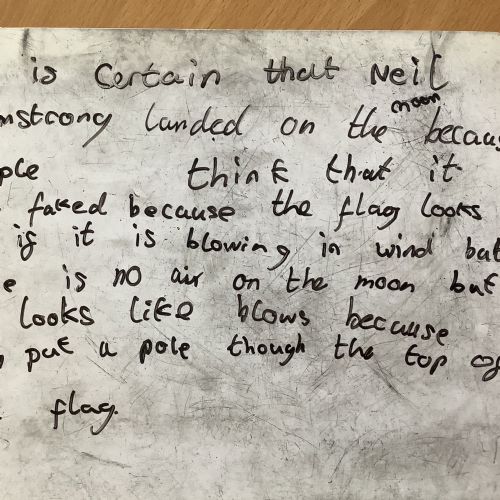 is Certain that Neil
mstrong landed on the moon becaus
ple think that it
faked because the flag looks
if it is blowing in wind but
e is no air on the moon but
looks like blows because
put a pole though the top of
flag.